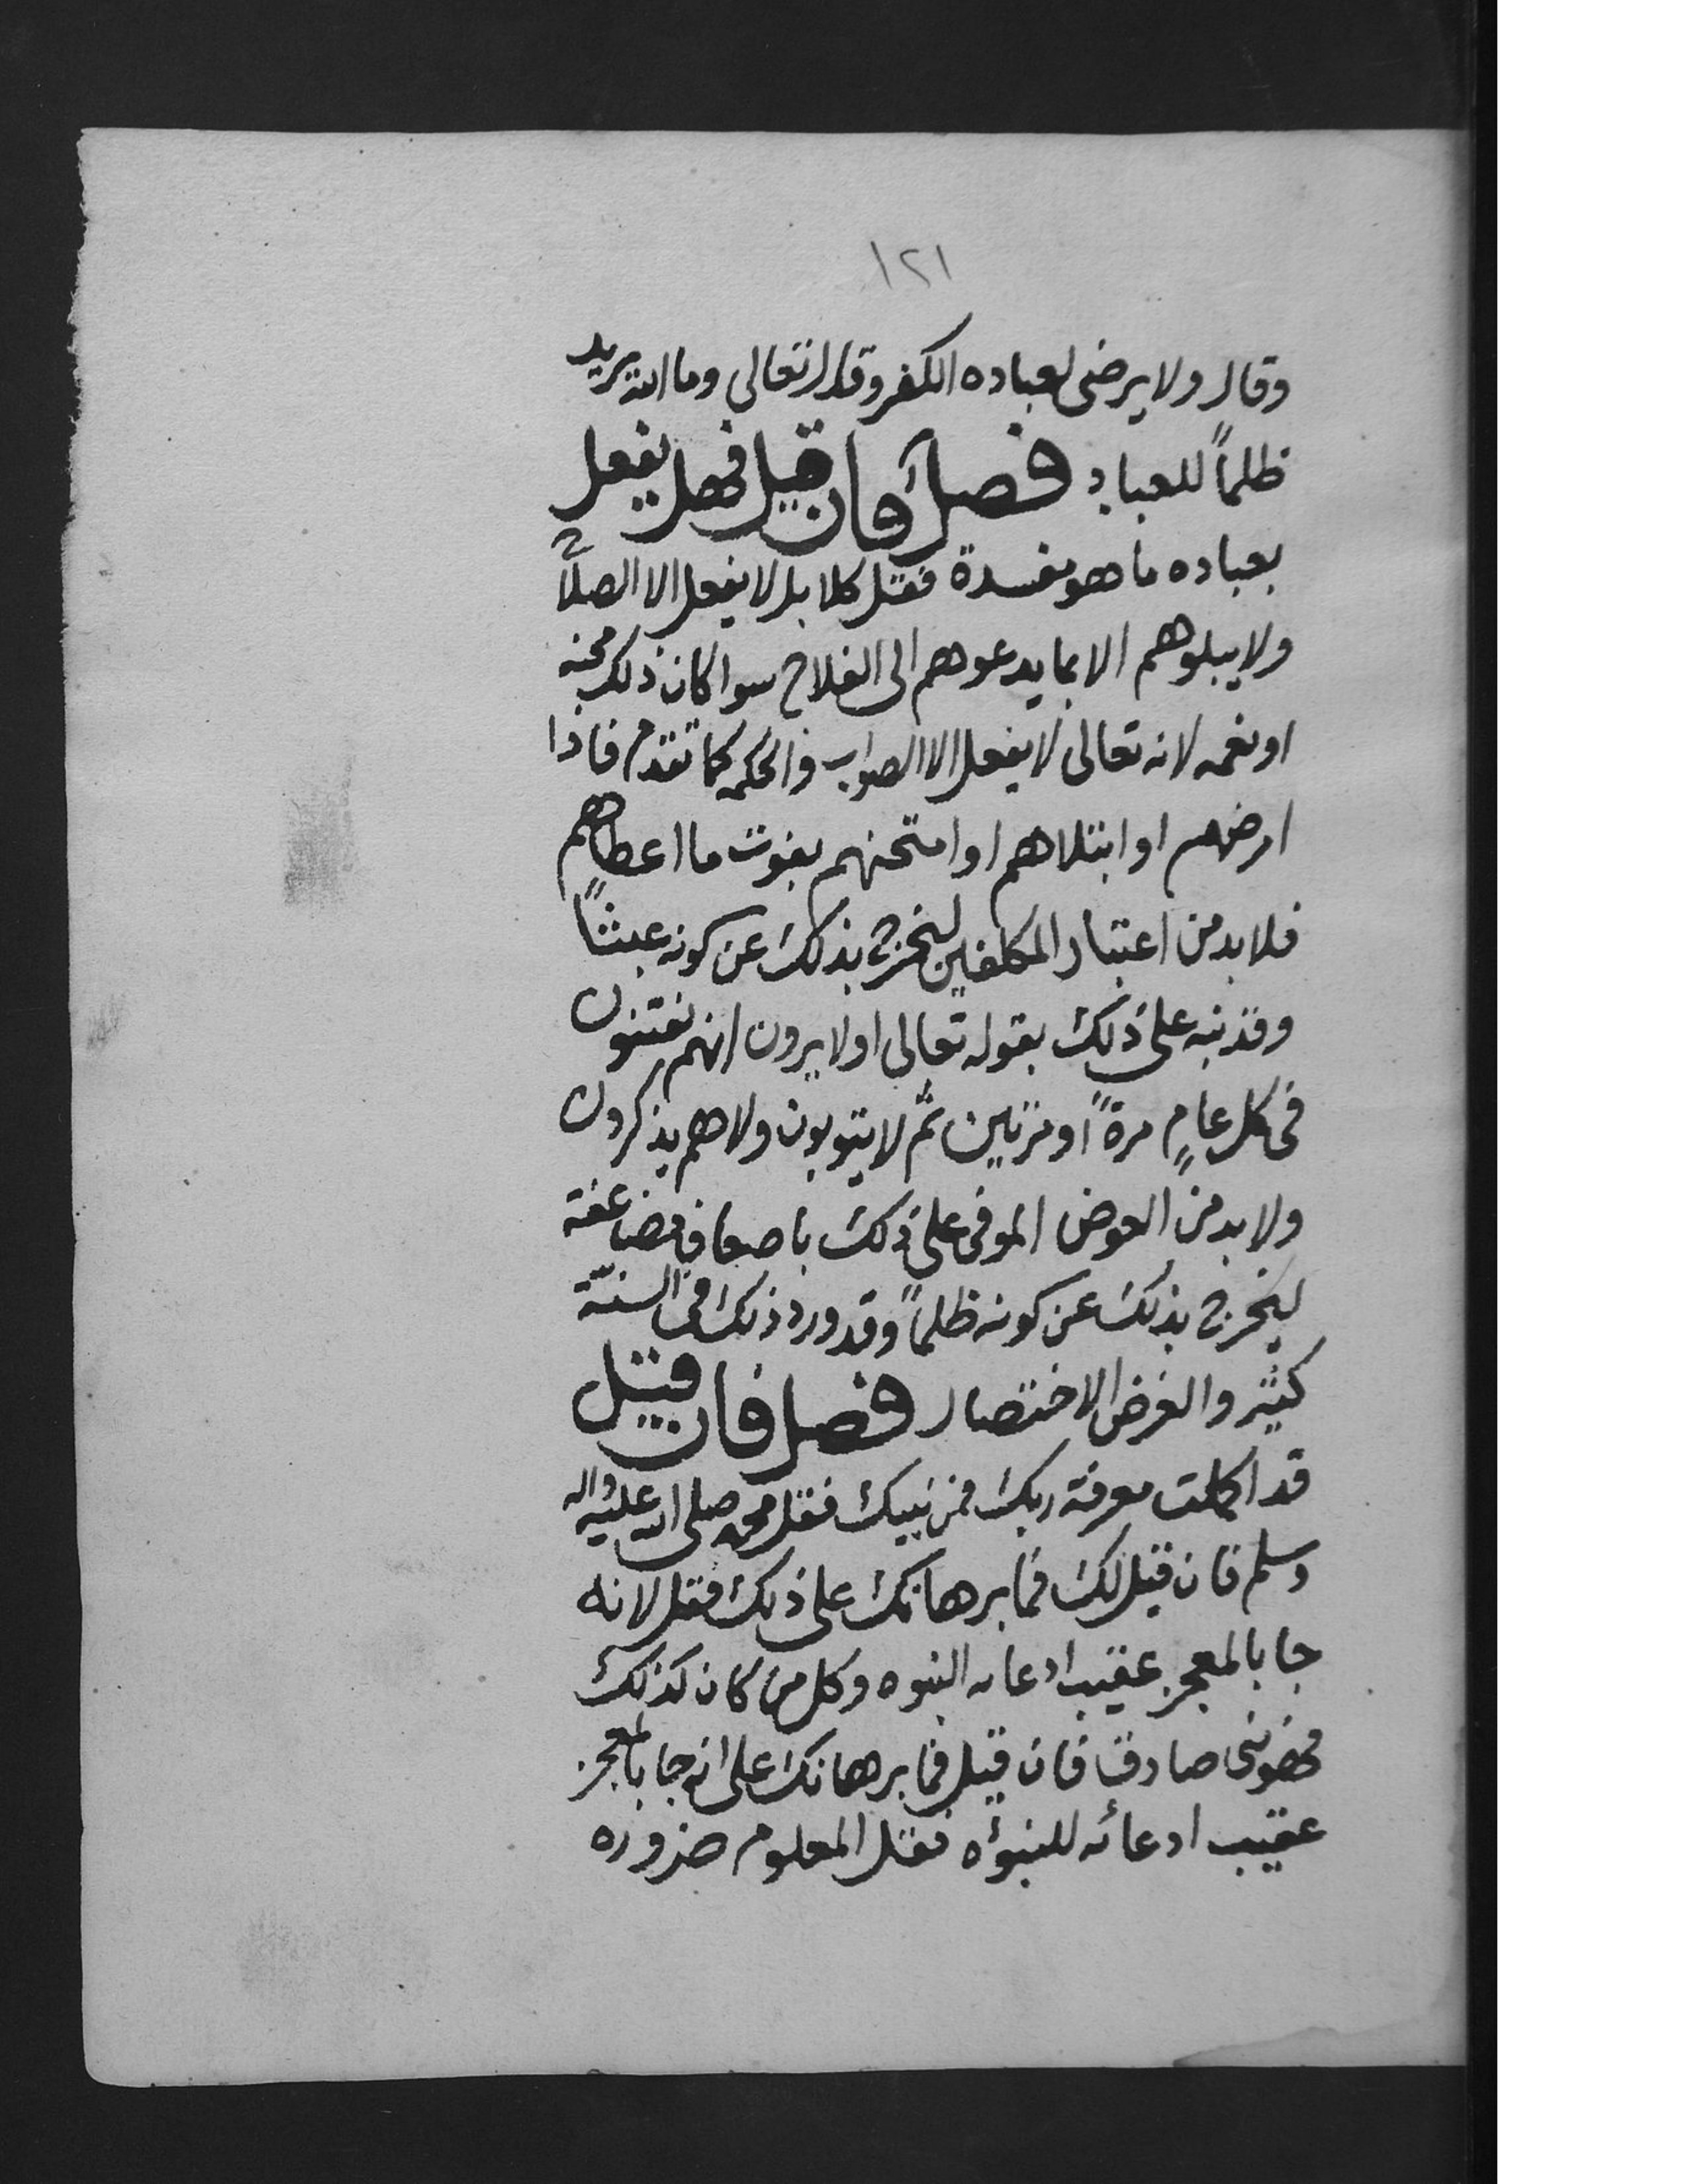 ١٢١
وقال ولا يرضى لعباده الكفر وقال تعالى وما الله يريد
ظلماً للعباد فصل فان قيل فهل يفعل
بعباده ما هو مفسدة فقل كلا بل لا يفعل الا الصلاح
ولا يبلوهم الا بما يدعوهم الى الفلاح سوا كان ذلك محنه
او نعمه لانه تعالى لا يفعل الا الصواب والحكمه كما تقدم فاذا
امرضهم او ابتلاهم او امتحنهم بفوت ما اعطاهم
فلا بد من اعتبار المكلفين ليخرج بذلك عن كونه عبثاً
وقد نبه على ذلك بقوله تعالى اولا يرون انهم يفتنون
فى كل عامٍ مرةً او مرتين ثم لا يتوبون ولا هم يذكرون
ولا بد من العوض الموفى على ذلك باضعاف مضاعفة
ليخرج بذلك عن كونه ظلماً وقد ورد ذلك فى السنّة
كثير والغرض الاختصار فصل فان قيل
قد اكملت معرفة ربك فمن نبيك فقل محمد صلى الله عليه واله
وسلم فان قيل لك فما برهانك على ذلك فقل لانه
جا بالمعجز عقيب ادعائه النبوه وكل من كان كذلك
فهو نبى صادق فان قيل فما برهانك على انه جا بالمعجز
عقيب ادعائه للنبؤه فقل المعلوم ضروره